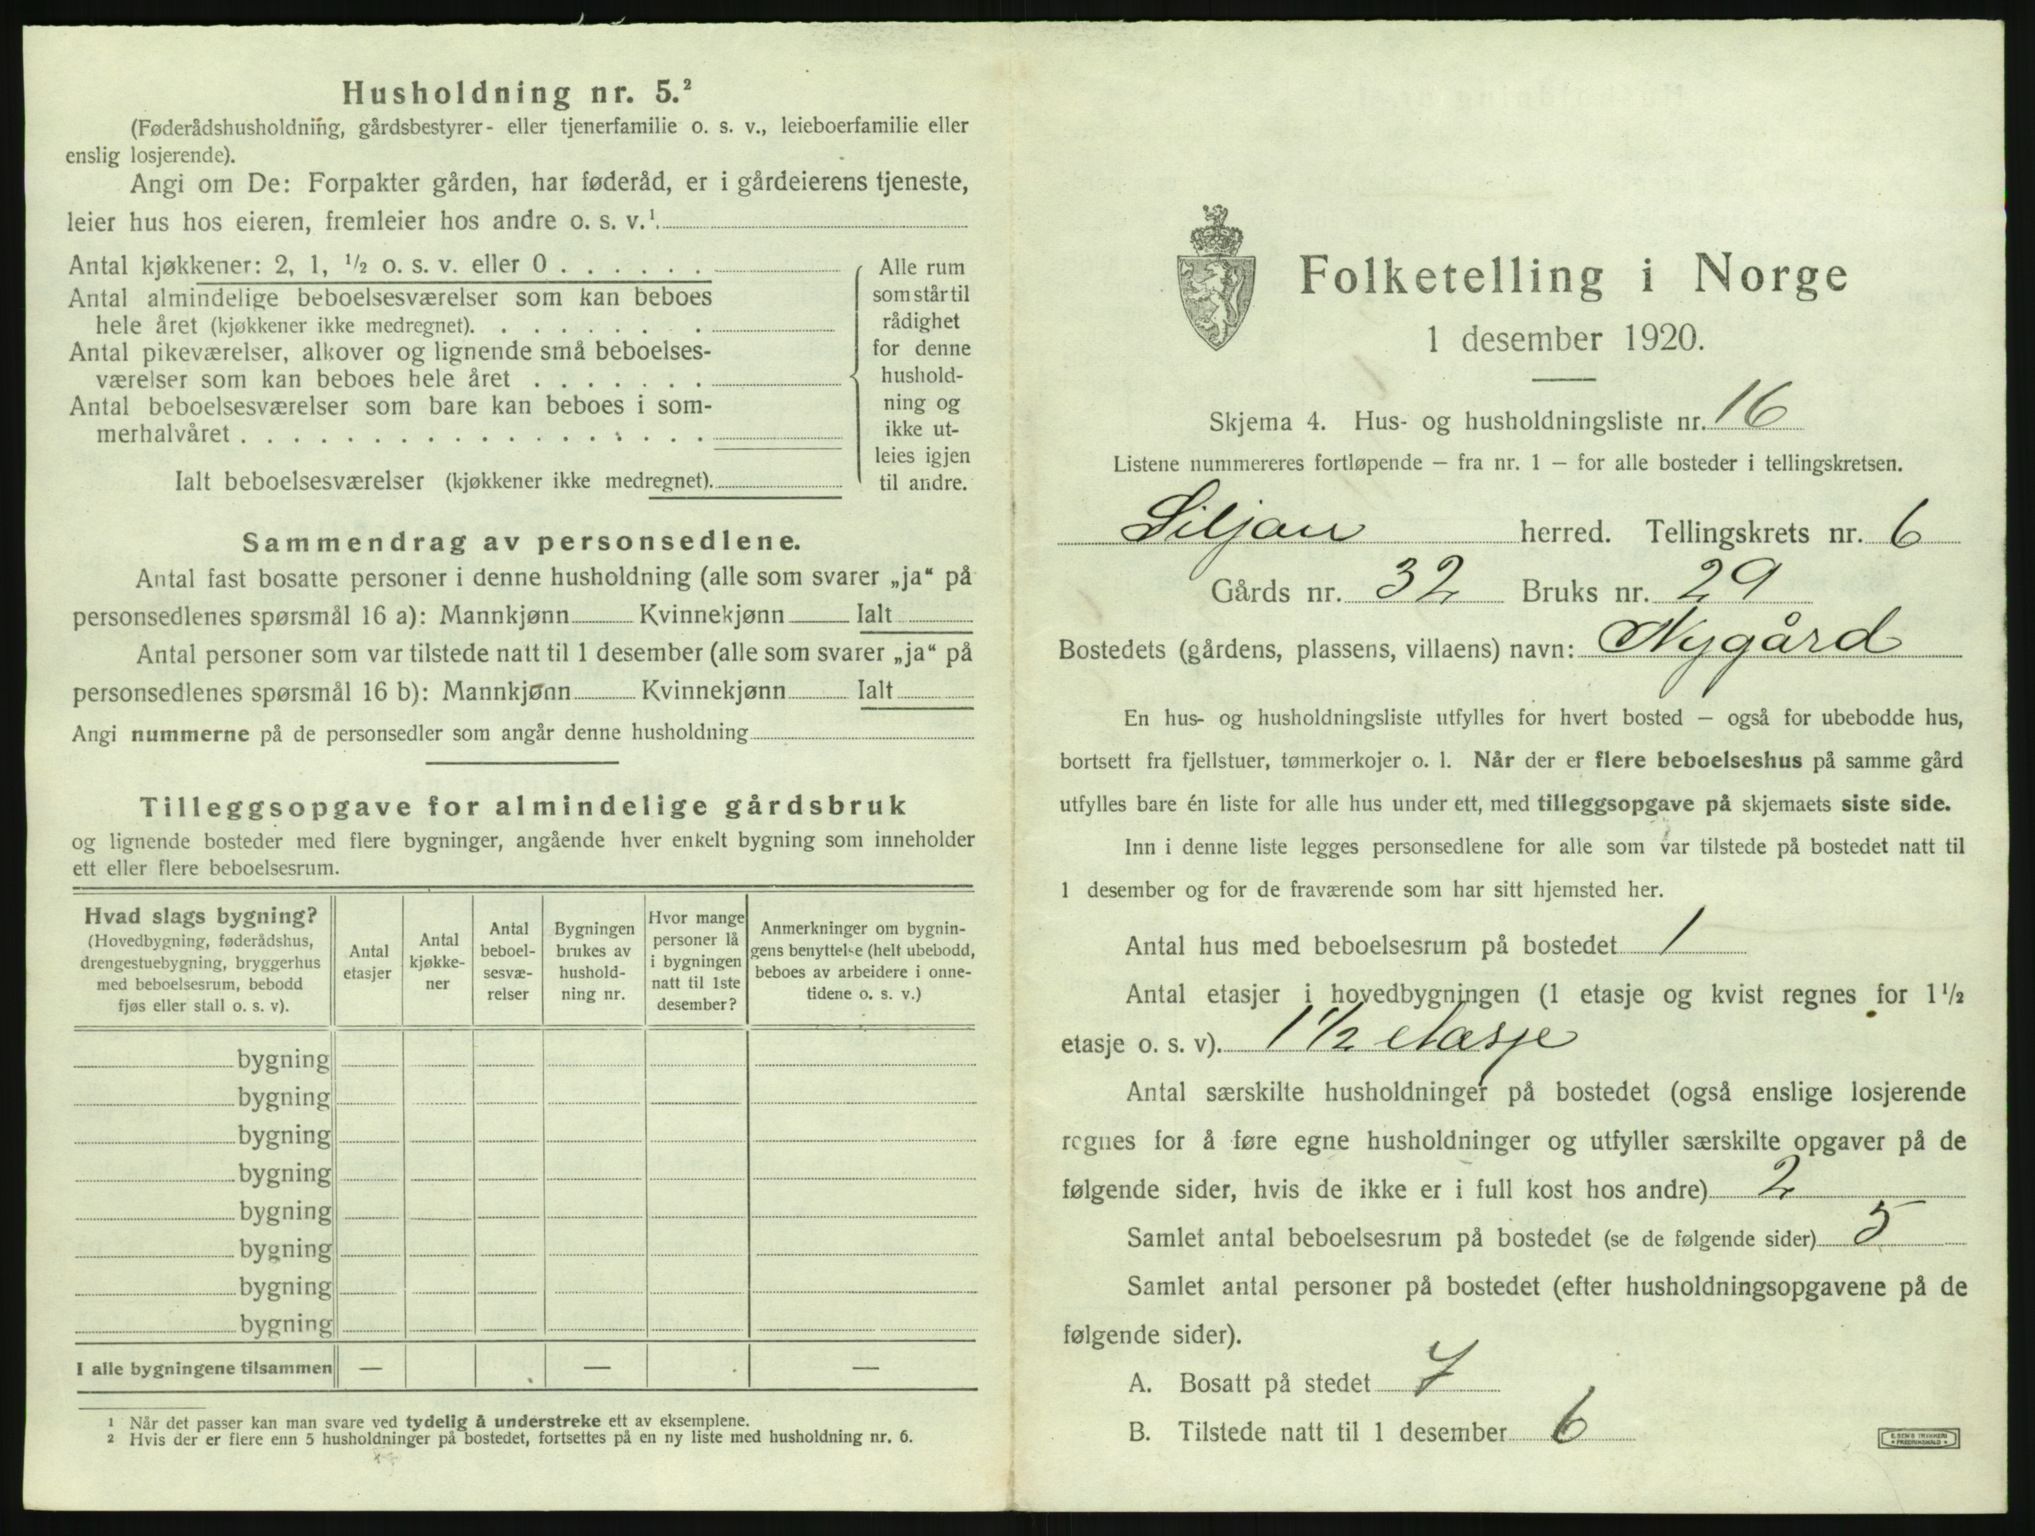 Husholdning nr. 5.²
(Føderådshusholdning, gårdsbestyrer- eller tjenerfamilie o. s. v., leieboerfamilie eller
enslig losjerende).
Angi om De: Forpakter gården, har føderåd, er i gårdeierens tjeneste,
leier hus hos eieren, fremleier hos andre o. s. v.¹
Antal kjøkkener: 2, 1, ½ o. s. v. eller 0 . . . . . .
Antal almindelige beboelsesværelser som kan beboes
hele året (kjøkkener ikke medregnet). . . . . . . .
Antal pikeværelser, alkover og lignende små beboelses-
værelser som kan beboes hele året . . . . . . .
Antal beboelsesværelser som bare kan beboes i som-
merhalvåret . . . . . . . . . . . . . . . . . .
Ialt beboelsesværelser (kjøkkener ikke medregnet).
Alle rum
som står til
rådighet
for denne
hushold-
ning og
ikke ut-
leies igjen
til andre.
Sammendrag av personsedlene.
Antal fast bosatte personer i denne husholdning (alle som svarer „ja“ på
personsedlenes spørsmål 16 a): Mannkjønn Kvinnekjønn Ialt
Antal personer som var tilstede natt til 1 desember (alle som svarer „ja“ på
personsedlenes spørsmål 16 b): Mannkjønn Kvinnekjønn Ialt
Angi nummerne på de personsedler som angår denne husholdning
Tilleggsopgave for almindelige gårdsbruk
og lignende bosteder med flere bygninger, angående hver enkelt bygning som inneholder
ett eller flere beboelsesrum.
Hvad slags bygning?
(Hovedbygning, føderådshus,
drengestuebygning, bryggerhus
med beboelsesrum, bebodd
fjøs eller stall o. s. v).
Antal
etasjer
Antal
kjøkke-
ner
Antal
beboel-
sesvæ-
relser
Bygningen
brukes av
hushold-
ning nr.
Hvor mange
personer lå
i bygningen
natt til 1ste
desember?
Anmerkninger om bygnin-
gens benyttelse (helt ubebodd,
beboes av arbeidere i onne-
tidene o. s. v.)
bygning
bygning
bygning
bygning
bygning
bygning
bygning
bygning
I alle bygningene tilsammen — — —
¹ Når det passer kan man svare ved tydelig å understreke ett av eksemplene.
² Hvis der er flere enn 5 husholdninger på bostedet, fortsettes på en ny liste med husholdning nr. 6.
Folketelling i Norge
1 desember 1920.
Skjema 4. Hus- og husholdningsliste nr. 16
Listene nummereres fortløpende – fra nr. 1 – for alle bosteder i tellingskretsen.
Siljan herred. Tellingskrets nr. 6
Gårds nr. 32 Bruks nr. 29
Bostedets (gårdens, plassens, villaens) navn: Nygård
En hus- og husholdningsliste utfylles for hvert bosted – også for ubebodde hus,
bortsett fra fjellstuer, tømmerkojer o. l. Når der er flere beboelseshus på samme gård
utfylles bare én liste for alle hus under ett, med tilleggsopgave på skjemaets siste side.
Inn i denne liste legges personsedlene for alle som var tilstede på bostedet natt til
1 desember og for de fraværende som har sitt hjemsted her.
Antal hus med beboelsesrum på bostedet 1
Antal etasjer i hovedbygningen (1 etasje og kvist regnes for 1½
etasje o. s. v). 1½ etasje
Antal særskilte husholdninger på bostedet (også enslige losjerende
regnes for å føre egne husholdninger og utfyller særskilte opgaver på de
følgende sider, hvis de ikke er i full kost hos andre) 2
Samlet antal beboelsesrum på bostedet (se de følgende sider) 5
Samlet antal personer på bostedet (efter husholdningsopgavene på de
følgende sider).
A. Bosatt på stedet 7
B. Tilstede natt til 1 desember 6